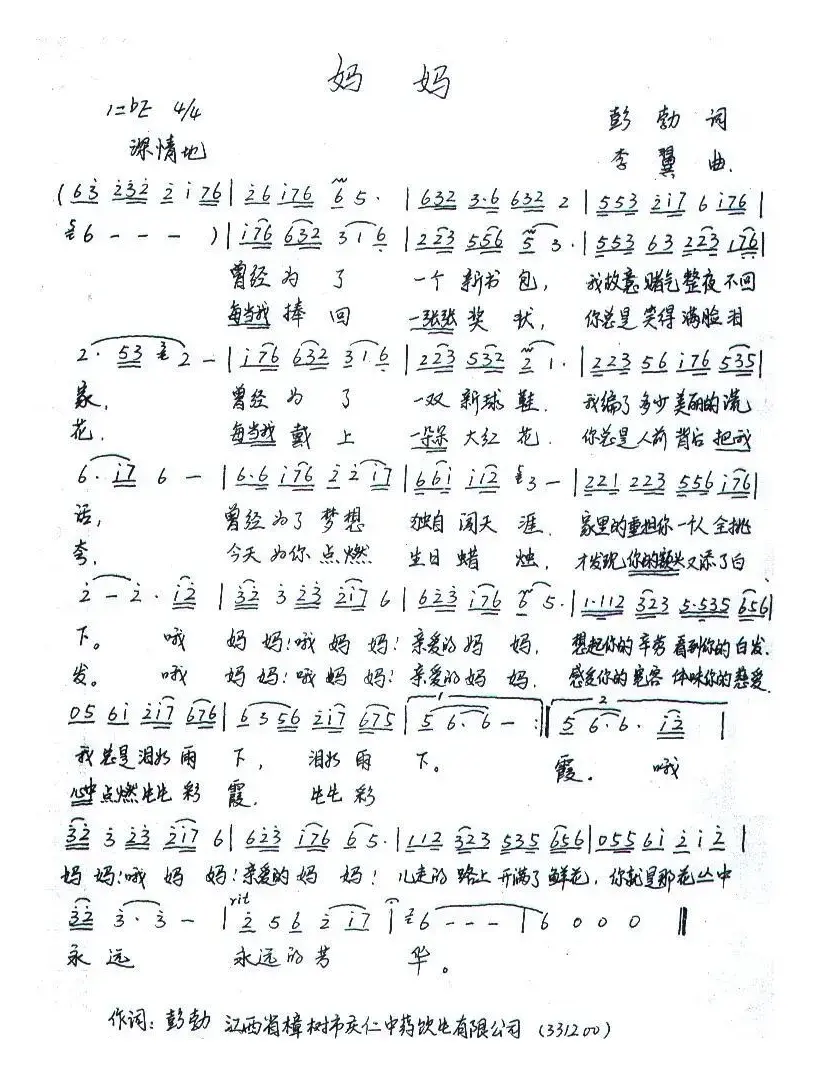 妈 妈
1=bE 4/4
彭勃 词
深情地
李翼 曲.
(6 3 2 3 2 2 i 7 6 | 2 6 i 7 6 6 5 · | 6 3 2 3 · 6 6 3 2 2 | 5 5 3 2 i 7 6 i 7 6 |
6 - - - ) | i 7 6 6 3 2 3 1 6 | 2 2 3 5 5 6 5 3 · | 5 5 3 6 3 2 2 3 1 7 6 |
曾经为了 一个新书包, 我故意赌气整夜不回
每当我捧回 一张张奖状, 你总是笑得满脸泪
2 · 5 3 2 - | i 7 6 6 3 2 3 1 6 | 2 2 3 5 3 2 2 1 · | 2 2 3 5 6 i 7 6 5 3 5 |
家, 曾经为了 一双新球鞋. 我编了多少美丽的谎
花, 每当我戴上 一朵朵大红花. 你总是人前背后把我
6 · i 7 6 - | 6 · 6 i 7 6 2 2 i 7 | 6 6 i i i 2 3 - | 2 2 1 2 2 3 5 5 6 i 7 6 |
话, 曾经为了梦想 独自闯天涯. 家里的重担你一人全挑
夸, 今天为你点燃 生日蜡烛, 才发现你的额头又添了白
2 - 2 · i 2 | 3 2 3 2 3 2 i 7 6 | 6 2 3 i 7 6 6 5 · | 1 · 1 1 2 3 2 3 5 · 5 3 5 6 5 6 |
下。 哦 妈妈!哦妈妈!亲爱的妈妈, 想起你的辛劳 看到你的白发.
发。 哦 妈妈!哦妈妈!亲爱的妈妈. 感受你的宽容 体味你的慈爱
0 5 6 i 2 i 7 6 7 6 | 6 3 5 6 2 i 7 6 7 5 | 1 5 6 · 6 - :‖ 2 5 6 · 6 · i 2 |
我总是泪如雨下, 泪如雨下。 霞。 哦
心中点燃生生彩霞. 生生彩
3 2 3 2 3 2 i 7 6 | 6 2 3 i 7 6 6 5 · | 1 1 2 3 2 3 5 3 5 6 5 6 | 0 5 5 6 i 2 i 2 |
妈妈!哦妈妈!亲爱的妈妈! 儿走的路上开满了鲜花, 你就是那花丛中
3 2 3 · 3 - | rit 2 5 6 2 i 7 | 6 - - - | 6 0 0 0 ‖
永远 永远的芳华。
作词: 彭勃 江西省樟树市庆仁中药饮片有限公司 (331200)